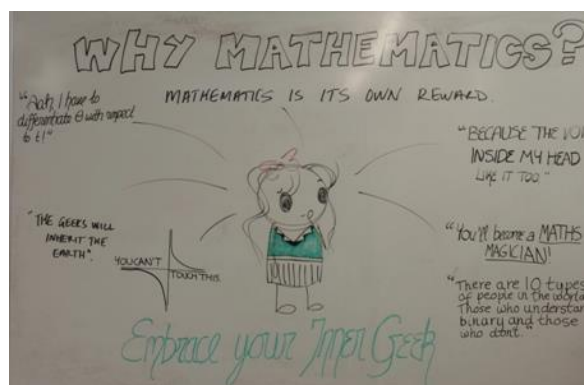 WHY MATHEMATICS?
MATHEMATICS IS ITS OWN REWARD.
"Aah, I have to
differentiate θ with respect
to t!"
"BECAUSE THE
INSIDE MY HEAD
LIKE IT TOO."
"THE GEEKS WILL
INHERIT THE
EARTH".
YOU CAN'T
TOUCH THIS.
"You'll become a MATHS
MAGICIAN!
"There are 10 types
of people in the world
Those who understan
binary and those
who don't."
Embrace your Inner Geek